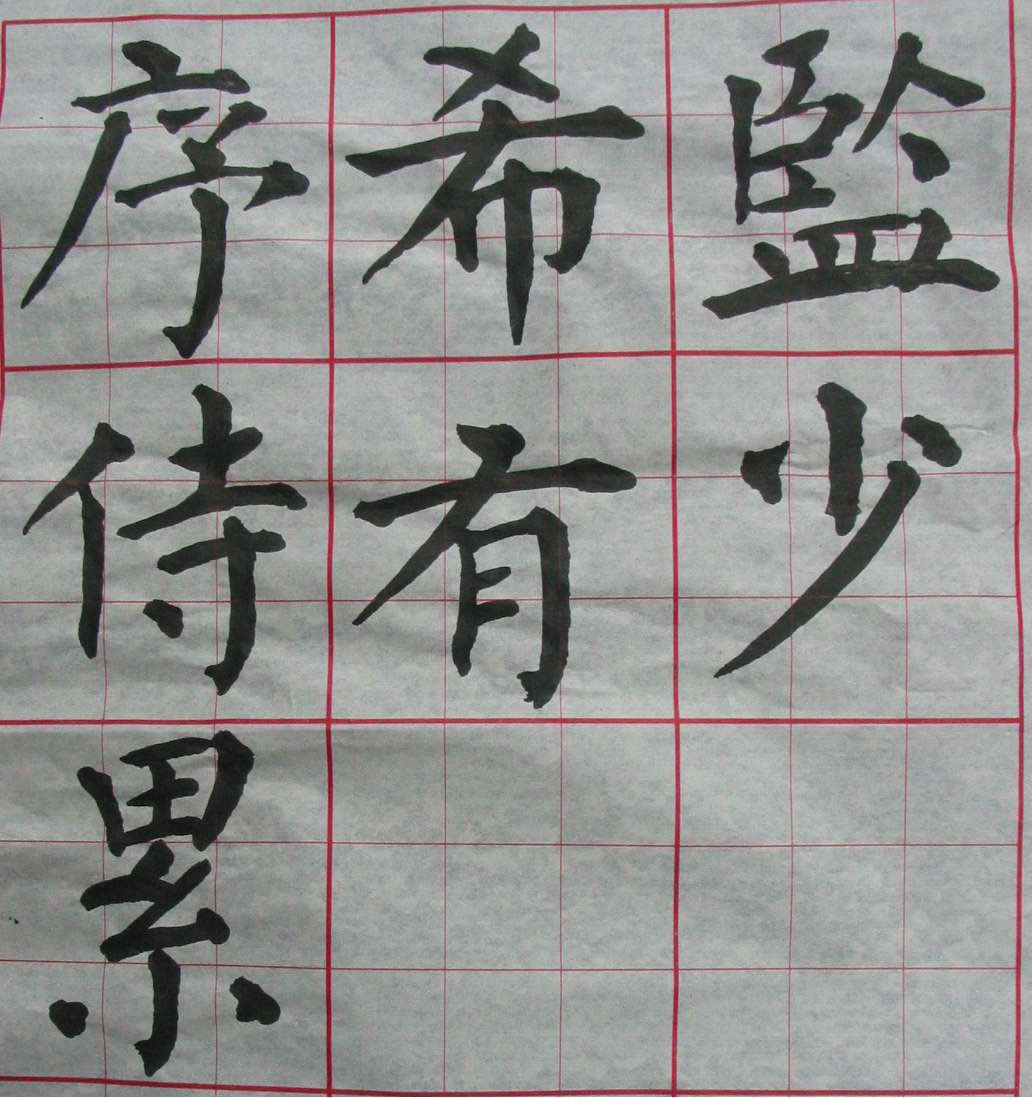 序希監
侍有少
累